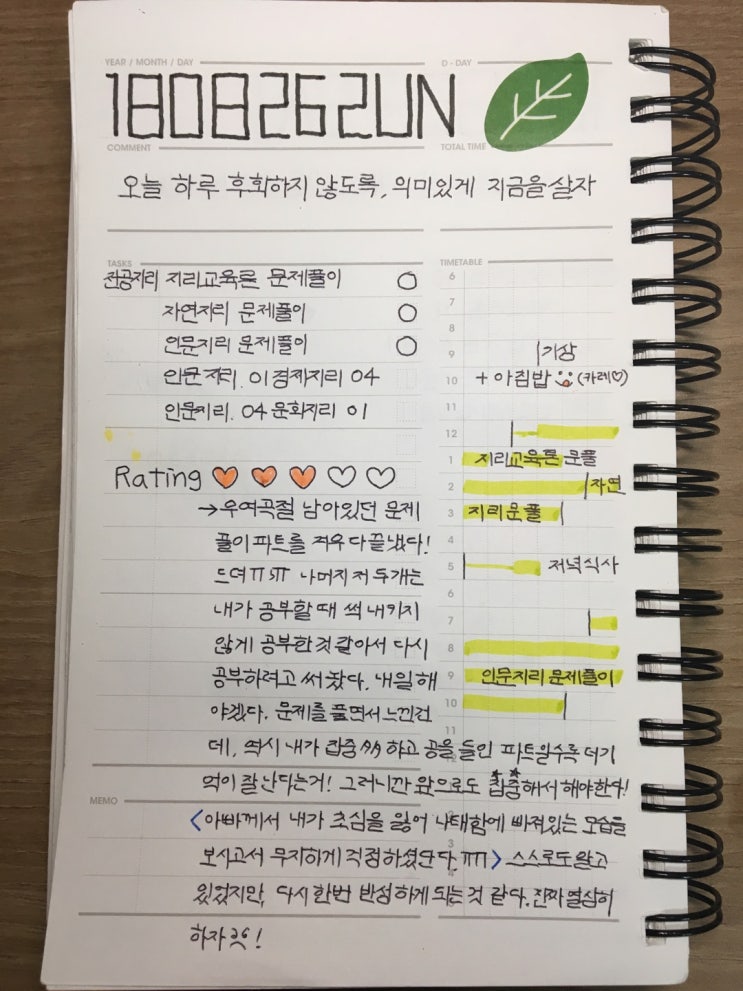 YEAR / MONTH / DAY
D - DAY
180826 SUN
COMMENT
TOTAL TIME
오늘 하루 후회하지 않도록, 의미있게 지금을 살자
TASKS
전공지리 지리교육론 문제풀이
자연지리 문제풀이
인문지리 문제풀이
인문지리. 01 경제지리 04
인문지리. 04 문화지리 01
Rating
→우여곡절 남아있던 문제
풀이 파트를 겨우 다 끝냈다!
드뎌ㅠㅠ 나머지 저 두개는
내가 공부할 때 썩 내키지
않게 공부한 것 같아서 다시
공부하려고 써놨다. 내일 해
야겠다. 문제를 풀면서 느낀건
데, 역시 내가 집중 빡 하고 공을 들인 파트일수록 더 기
억이 잘 난다는거! 그러니깐 앞으로도 집중해서 해야한다!
TIMETABLE
6
7
8
9 기상
10 + 아침밥 (카레♡)
11
12
1 지리교육론 문풀
2 자연
3 지리문풀
4
5 저녁식사
6
7
8
9 인문지리 문제풀이
10
11
MEMO
<아빠께서 내가 초심을 잃어 나태함에 빠져있는 모습을
보시고서 무지하게 걱정하셨단다.ㅠㅠ> 스스로도 알고
있었지만, 다시 한번 반성하게 되는 것 같다. 진짜 열심히
하자!